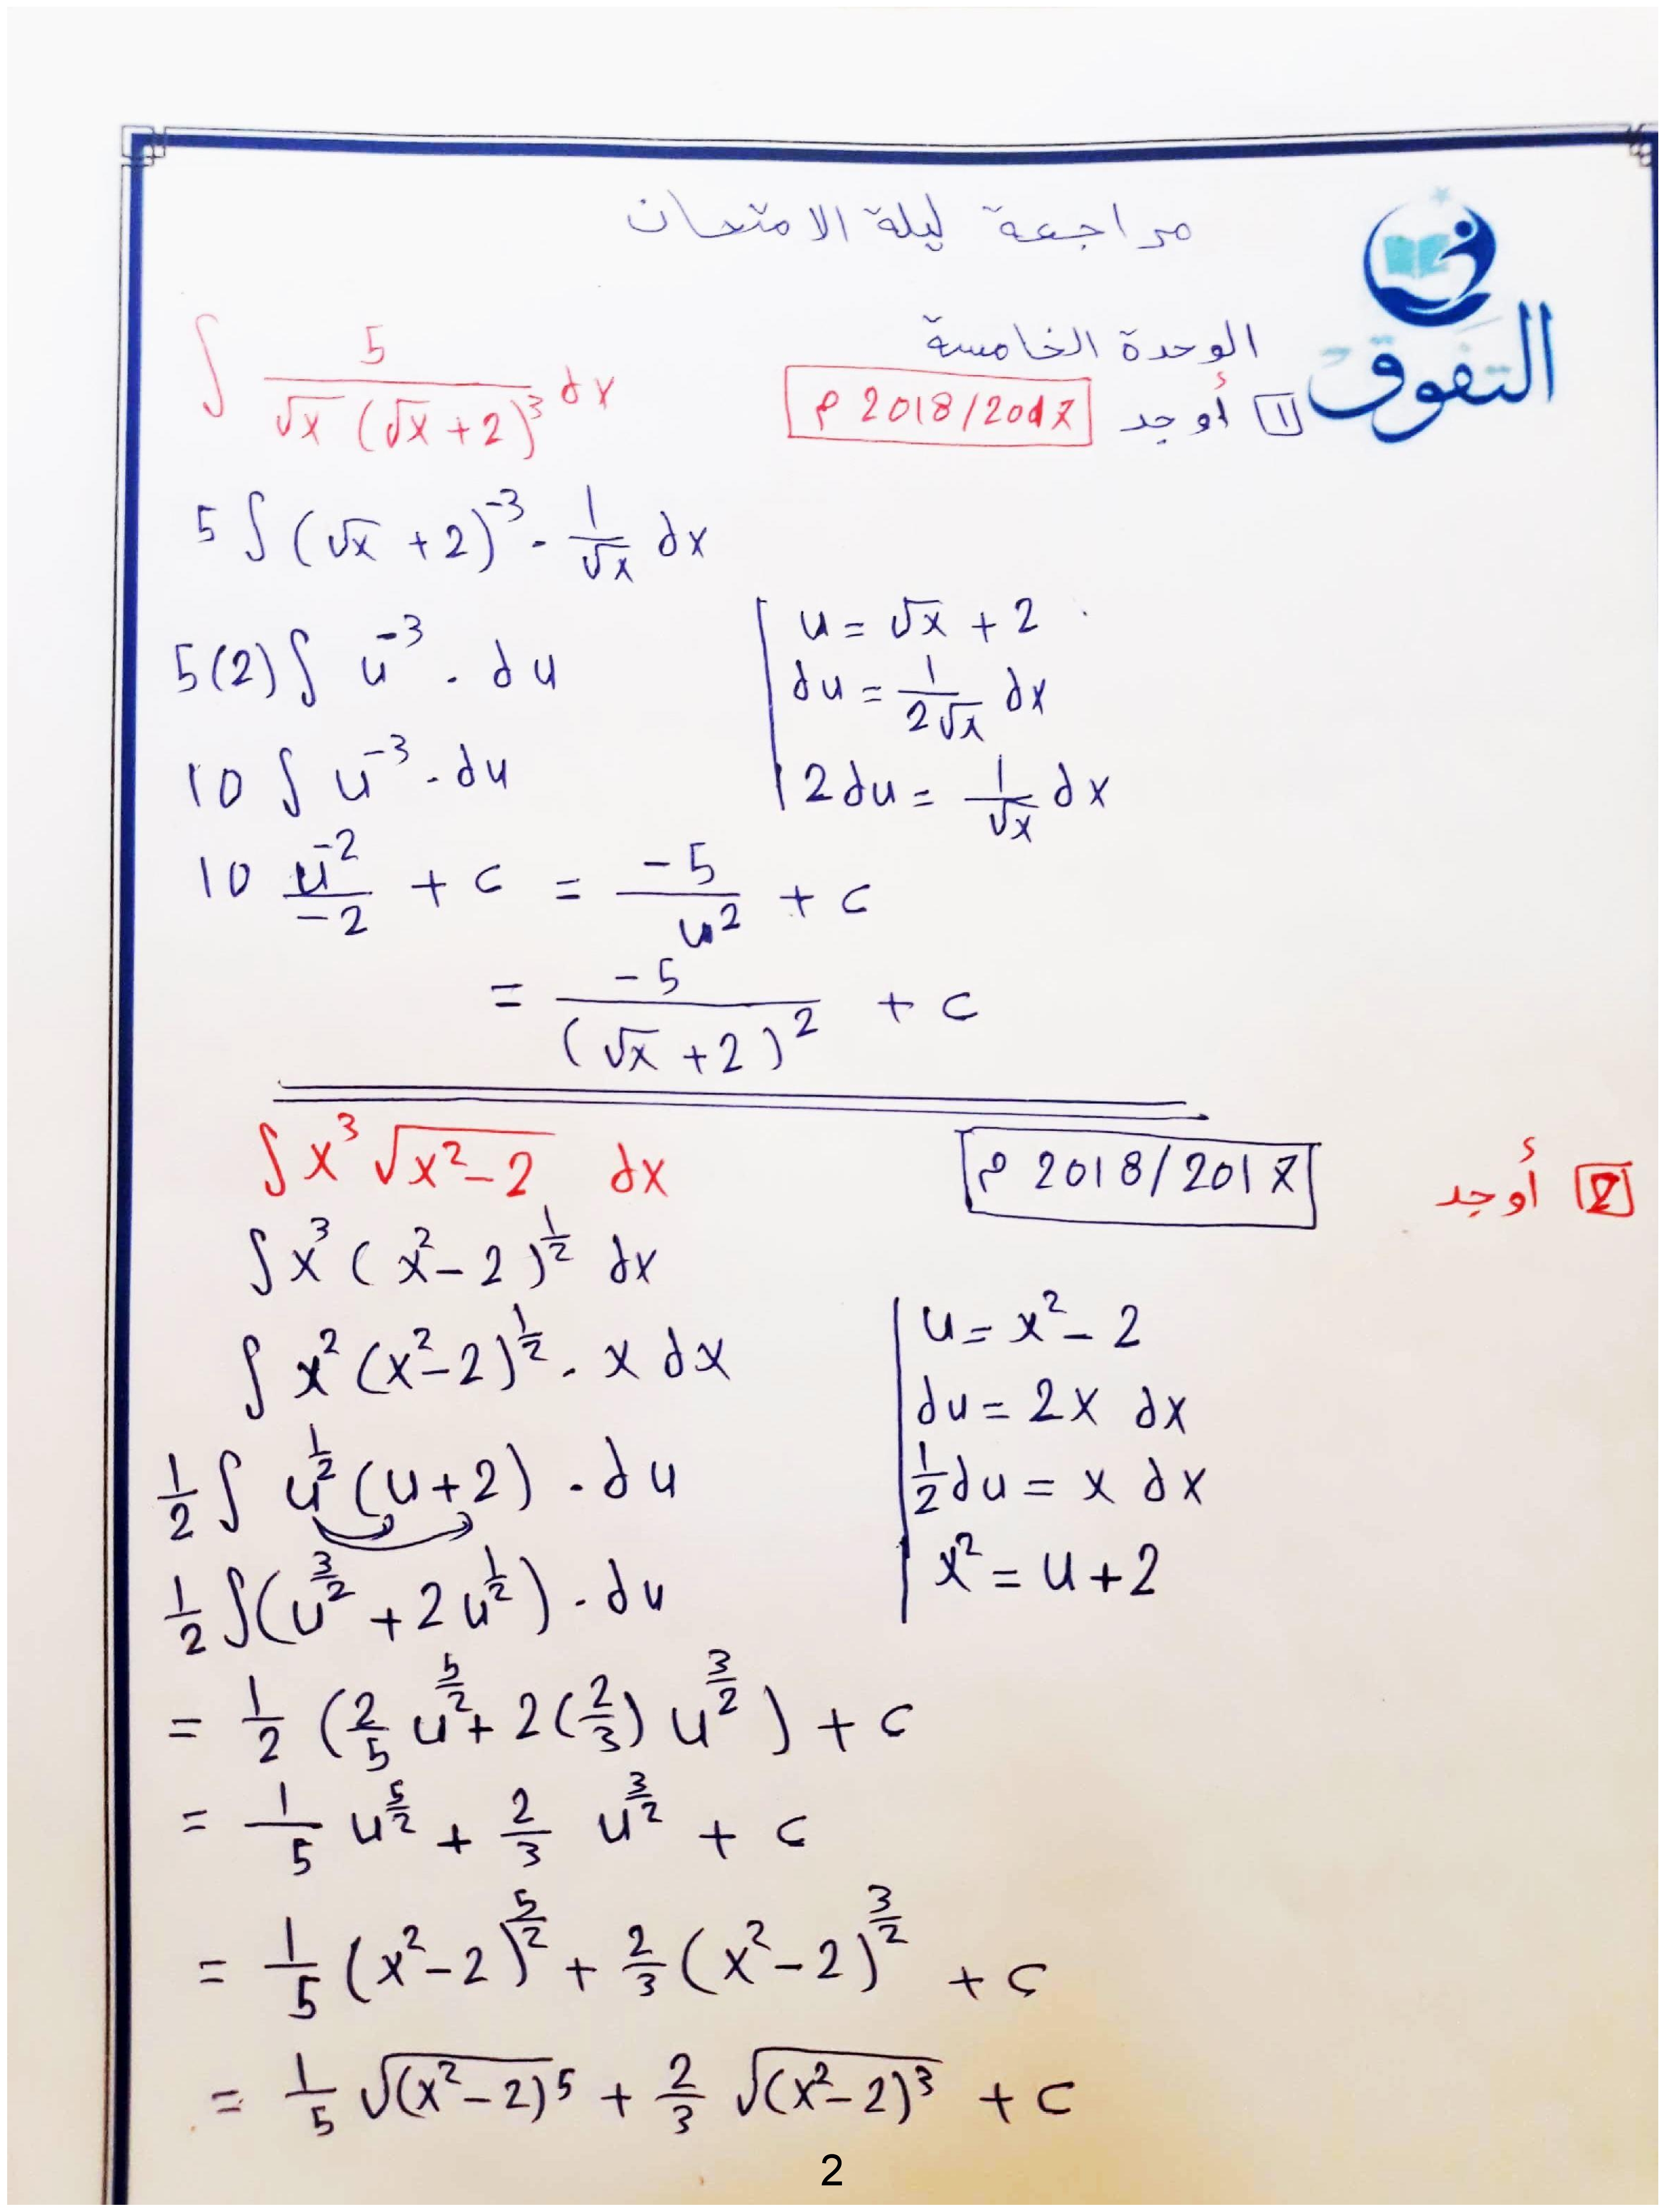 مراجعة ليلة الامتحان
التفوق
الوحدة الخامسة
1 أوجد 2018/2017 م ∫ 5/(√x (√x + 2)³) dx
5 ∫ (√x + 2)⁻³ · 1/√x dx
u = √x + 2
5(2) ∫ u⁻³ · du
du = 1/(2√x) dx
10 ∫ u⁻³ · du
2du = 1/√x dx
10 u⁻²/-2 + c = -5/u² + c
= -5/(√x + 2)² + c
2 أوجد 2018/2017 م ∫ x³ √(x² - 2) dx
∫ x³ (x² - 2)^(1/2) dx
u = x² - 2
∫ x² (x² - 2)^(1/2) · x dx
du = 2x dx
1/2 ∫ u^(1/2) (u + 2) · du
1/2 du = x dx
1/2 ∫ (u^(3/2) + 2u^(1/2)) · du
x² = u + 2
= 1/2 (2/5 u^(5/2) + 2(2/3) u^(3/2)) + c
= 1/5 u^(5/2) + 2/3 u^(3/2) + c
= 1/5 (x² - 2)^(5/2) + 2/3 (x² - 2)^(3/2) + c
= 1/5 √(x² - 2)⁵ + 2/3 √(x² - 2)³ + c
2